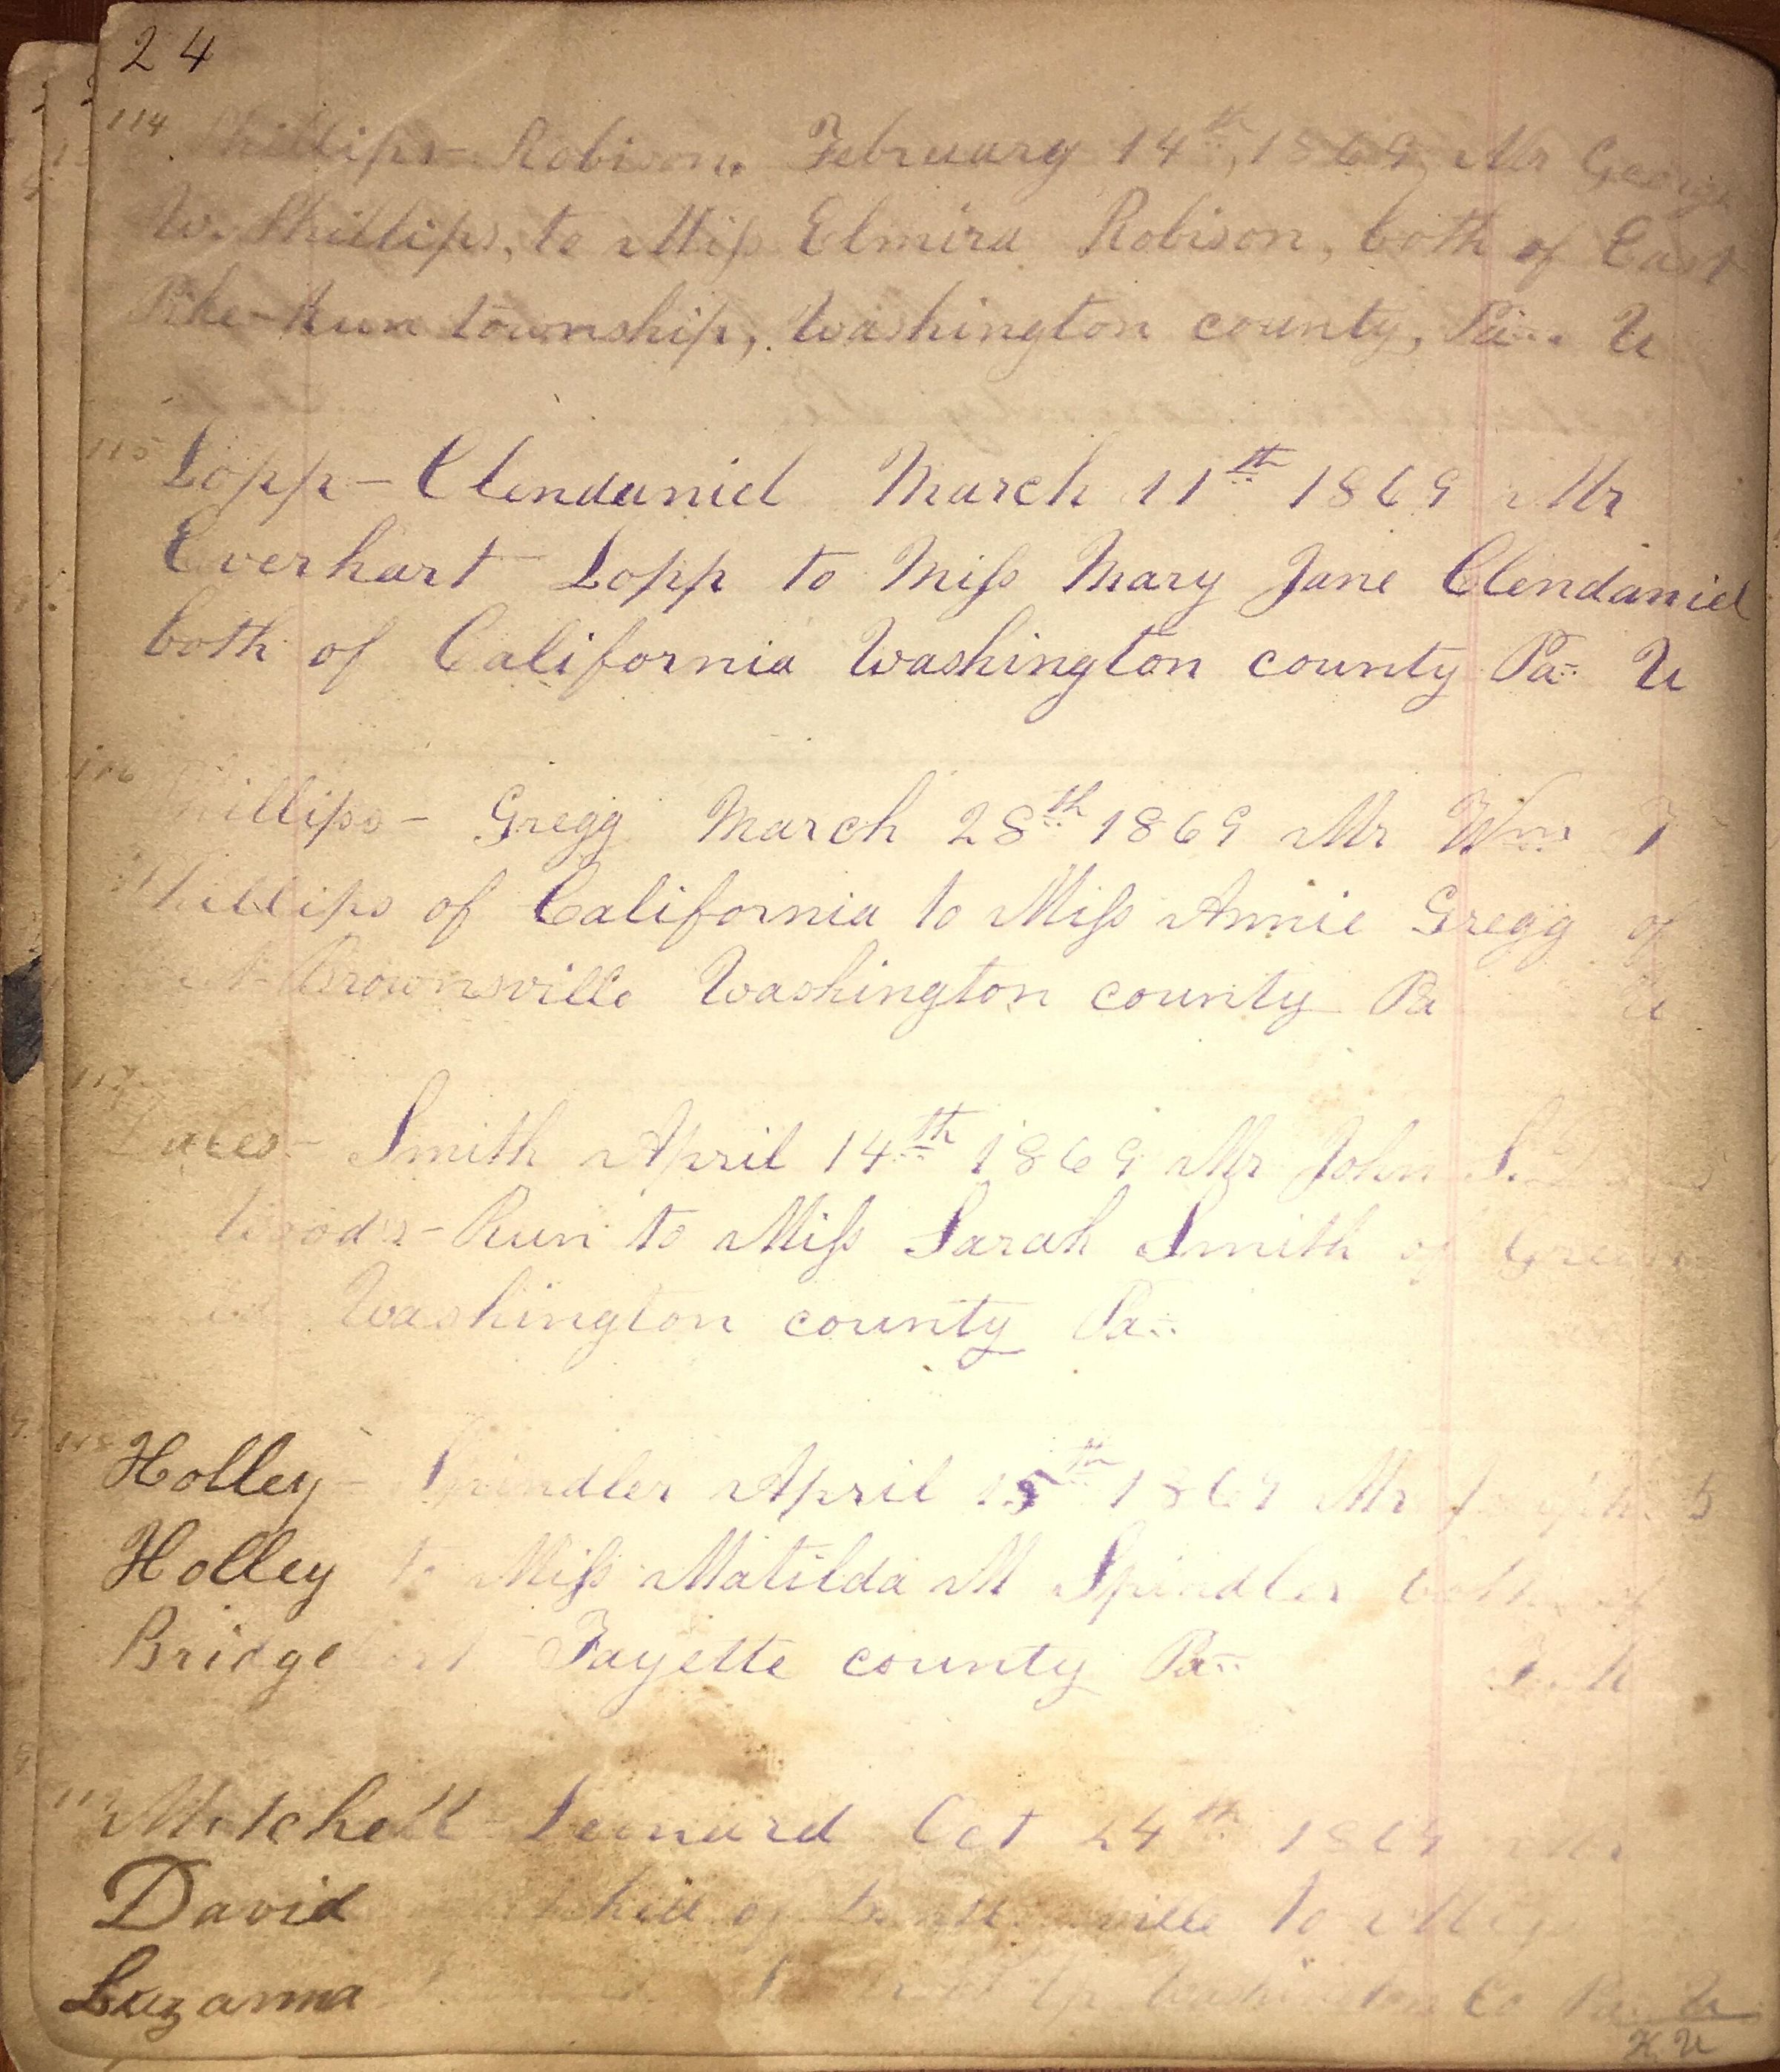 24
114
Phillips - Robison. February 14th, 1869 Mr George
W. Phillips, to Miss Elmira Robison, both of East
Pike-Run township, Washington county, Pa. U
115
Lopp - Clendaniel March 11th 1869 Mr
Everhart Lopp to Miss Mary Jane Clendaniel
both of California Washington county Pa U
116
Phillips - Gregg March 28th 1869 Mr Wm
Phillips of California to Miss Annie Gregg of
Brownsville Washington county Pa U
117
Smith April 14th 1869 Mr John
Woods-Run to Miss Sarah Smith of
Washington county Pa
118
Holley - Spindler April 15th 1869 Mr
Holley to Miss Matilda M Spindler both of
Bridgeport Fayette county Pa
Mitchell Leonard Oct 24th 1869
David ville to Miss
Luzanna Tp Washington Co Pa U
K U